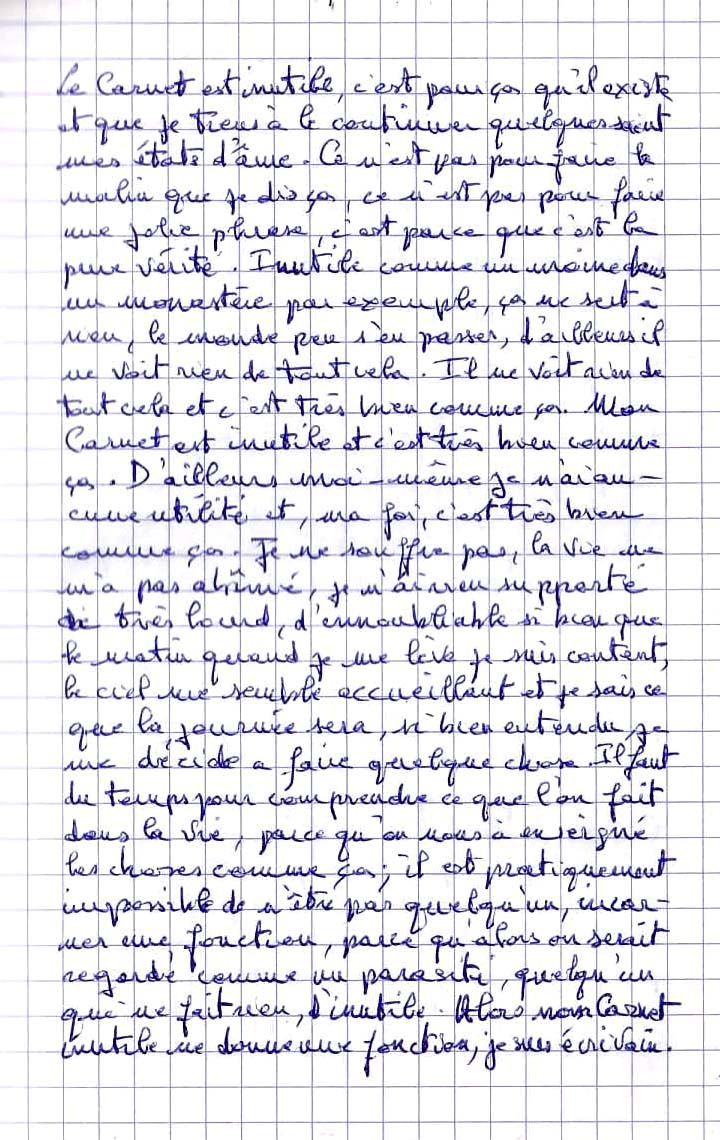 Le Carnet est inutile, c'est pour ça qu'il existe
et que je tiens à le continuer quelques soient
mes états d'âme. Ce n'est pas pour faire le
malin que je dis ça, ce n'est pas pour faire
une jolie phrase, c'est parce que c'est la
pure vérité. Inutile comme un moine dans
un monastère par exemple, ça ne sert à
rien, le monde peu s'en passer, d'ailleurs il
ne voit rien de tout cela. Il ne voit rien de
tout cela et c'est très bien comme ça. Mon
Carnet est inutile et c'est très bien comme
ça. D'ailleurs moi-même je n'ai au-
cune utilité et, ma foi, c'est très bien
comme ça. Je ne souffre pas, la vie ne
m'a pas abîmé, je n'ai rien supporté
de très lourd, d'innoubliable si bien que
le matin quand je me lève je suis content,
le ciel me semble accueillant et je sais ce
que la journée sera, si bien entendu je
me décide a faire quelque chose. Il faut
du temps pour comprendre ce que l'on fait
dans la vie, parce qu'on nous à enseigné
les choses comme ça; il est pratiquement
impossible de n'être pas quelqu'un, incar-
ner une fonction, parce qu'alors on serait
regardé comme un parasite, quelqu'un
qui ne fait rien, d'inutile. Alors mon Carnet
inutile me donne une fonction, je suis écrivain.